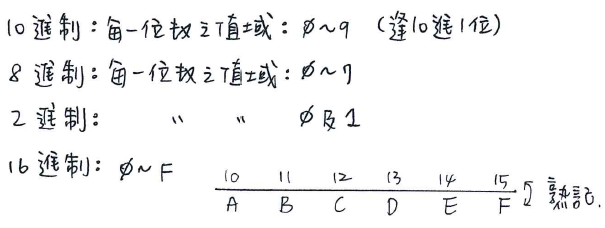 10 進制：每一位数之值域：ø~9 （逢10進1位）
8 進制：每一位数之值域：ø~7
2 進制： 〃 〃 ø及1
16 進制：ø~F
10 11 12 13 14 15
A B C D E F 熟記.